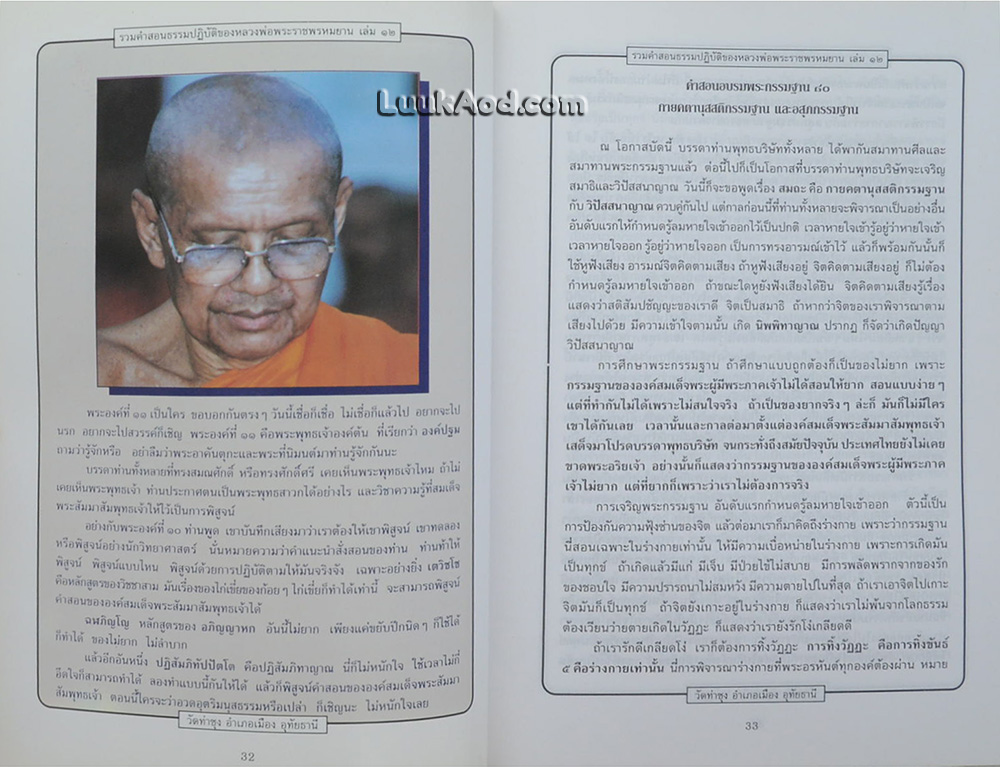 รวมคำสอนธรรมปฏิบัติของหลวงพ่อพระราชพรหมยาน เล่ม ๑๒
LuukAod.com
พระองค์ที่ ๑๑ เป็นใคร ขอบอกกันตรงๆ วันนี้เชื่อก็เชื่อ ไม่เชื่อก็แล้วไป อยากจะไป
นรก อยากจะไปสวรรค์ก็เชิญ พระองค์ที่ ๑๑ คือพระพุทธเจ้าองค์ต้น ที่เรียกว่า องค์ปฐม
ถามว่ารู้จักหรือ อย่าลืมว่าพระอาคันตุกะและพระที่นิมนต์มาท่านรู้จักกันนะ
บรรดาท่านทั้งหลายที่ทรงสมณศักดิ์ หรือทรงศักดิ์ศรี เคยเห็นพระพุทธเจ้าไหม ถ้าไม่
เคยเห็นพระพุทธเจ้า ท่านประกาศตนเป็นพระพุทธสาวกได้อย่างไร และวิชาความรู้ที่สมเด็จ
พระสัมมาสัมพุทธเจ้าให้ไว้เป็นการพิสูจน์
อย่างกับพระองค์ที่ ๑๐ ท่านพูด เขาบันทึกเสียงมาว่าเราต้องให้เขาพิสูจน์ เขาทดลอง
หรือพิสูจน์อย่างนักวิทยาศาสตร์ นั่นหมายความว่าคำแนะนำสั่งสอนของท่าน ท่านท้าให้
พิสูจน์ พิสูจน์แบบไหน พิสูจน์ด้วยการปฏิบัติตามให้มันจริงจัง เฉพาะอย่างยิ่ง เตวิชโช
คือหลักสูตรของวิชชาสาม มันเรื่องของไก่เขี่ยของก้อยๆ ไก่เขี่ยก็ทำได้เท่านี้ จะสามารถพิสูจน์
คำสอนขององค์สมเด็จพระสัมมาสัมพุทธเจ้าได้
ฉฬภิญโญ หลักสูตรของ อภิญญาหก อันนี้ไม่ยาก เพียงแค่ขยับปีกนิดๆ ก็ใช้ได้
ก็ทำได้ ของไม่ยาก ไม่ลำบาก
แล้วอีกอันหนึ่ง ปฏิสัมภิทัปปัตโต คือปฏิสัมภิทาญาณ นี่ก็ไม่หนักใจ ใช้เวลาไม่กี่
อึดใจก็สามารถทำได้ ลองทำแบบนี้กันให้ได้ แล้วก็พิสูจน์คำสอนขององค์สมเด็จพระสัมมา
สัมพุทธเจ้า ตอนนี้ใครจะว่าอวดอุตริมนุสธรรมหรือเปล่า ก็เชิญนะ ไม่หนักใจเลย
วัดท่าซุง อำเภอเมือง อุทัยธานี
32
รวมคำสอนธรรมปฏิบัติของหลวงพ่อพระราชพรหมยาน เล่ม ๑๒
คำสอนอบรมพระกรรมฐาน ๔๐
กายคตานุสสติกรรมฐาน และอสุภกรรมฐาน
ณ โอกาสบัดนี้ บรรดาท่านพุทธบริษัททั้งหลาย ได้พากันสมาทานศีลและ
สมาทานพระกรรมฐานแล้ว ต่อนี้ไปก็เป็นโอกาสที่บรรดาท่านพุทธบริษัทจะเจริญ
สมาธิและวิปัสสนาญาณ วันนี้ก็จะขอพูดเรื่อง สมถะ คือ กายคตานุสสติกรรมฐาน
กับ วิปัสสนาญาณ ควบคู่กันไป แต่กาลก่อนนี้ที่ท่านทั้งหลายจะพิจารณาเป็นอย่างอื่น
อันดับแรกให้กำหนดรู้ลมหายใจเข้าออกไว้เป็นปกติ เวลาหายใจเข้ารู้อยู่ว่าหายใจเข้า
เวลาหายใจออก รู้อยู่ว่าหายใจออก เป็นการทรงอารมณ์เข้าไว้ แล้วก็พร้อมกันนั้นก็
ใช้หูฟังเสียง อารมณ์จิตคิดตามเสียง ถ้าหูฟังเสียงอยู่ จิตคิดตามเสียงอยู่ ก็ไม่ต้อง
กำหนดรู้ลมหายใจเข้าออก ถ้าขณะใดหูยังฟังเสียงได้ยิน จิตคิดตามเสียงรู้เรื่อง
แสดงว่าสติสัมปชัญญะของเราดี จิตเป็นสมาธิ ถ้าหากว่าจิตของเราพิจารณาตาม
เสียงไปด้วย มีความเข้าใจตามนั้น เกิด นิพพิทาญาณ ปรากฏ ก็จัดว่าเกิดปัญญา
วิปัสสนาญาณ
การศึกษาพระกรรมฐาน ถ้าศึกษาแบบถูกต้องก็เป็นของไม่ยาก เพราะ
กรรมฐานขององค์สมเด็จพระผู้มีพระภาคเจ้าไม่ได้สอนให้ยาก สอนแบบง่ายๆ
แต่ที่ทำกันไม่ได้เพราะไม่สนใจจริง ถ้าเป็นของยากจริงๆ ล่ะก็ มันก็ไม่มีใคร
เขาได้กันเลย เวลานั้นและกาลต่อมาตั้งแต่องค์สมเด็จพระสัมมาสัมพุทธเจ้า
เสด็จมาโปรดบรรดาพุทธบริษัท จนกระทั่งถึงสมัยปัจจุบัน ประเทศไทยยังไม่เคย
ขาดพระอริยเจ้า อย่างนั้นก็แสดงว่ากรรมฐานขององค์สมเด็จพระผู้มีพระภาค
เจ้าไม่ยาก แต่ที่ยากก็เพราะว่าเราไม่ต้องการจริง
การเจริญพระกรรมฐาน อันดับแรกกำหนดรู้ลมหายใจเข้าออก ตัวนี้เป็น
การป้องกันความฟุ้งซ่านของจิต แล้วต่อมาเราก็มาคิดถึงร่างกาย เพราะว่ากรรมฐาน
นี่สอนเฉพาะในร่างกายเท่านั้น ให้มีความเบื่อหน่ายในร่างกาย เพราะการเกิดมัน
เป็นทุกข์ ถ้าเกิดแล้วมีแก่ มีเจ็บ มีป่วยไข้ไม่สบาย มีการพลัดพรากจากของรัก
ของชอบใจ มีความปรารถนาไม่สมหวัง มีความตายไปในที่สุด ถ้าเราเอาจิตไปเกาะ
จิตมันก็เป็นทุกข์ ถ้าจิตยังเกาะอยู่ในร่างกาย ก็แสดงว่าเราไม่พ้นจากโลกธรรม
ต้องเวียนว่ายตายเกิดในวัฏฏะ ก็แสดงว่าเรายังรักโง่เกลียดดี
ถ้าเรารักดีเกลียดโง่ เราก็ต้องการทิ้งวัฏฏะ การทิ้งวัฏฏะ คือการทิ้งขันธ์
๕ คือร่างกายเท่านั้น นี่การพิจารณาร่างกายที่พระอรหันต์ทุกองค์ต้องผ่าน หมาย
วัดท่าซุง อำเภอเมือง อุทัยธานี
33